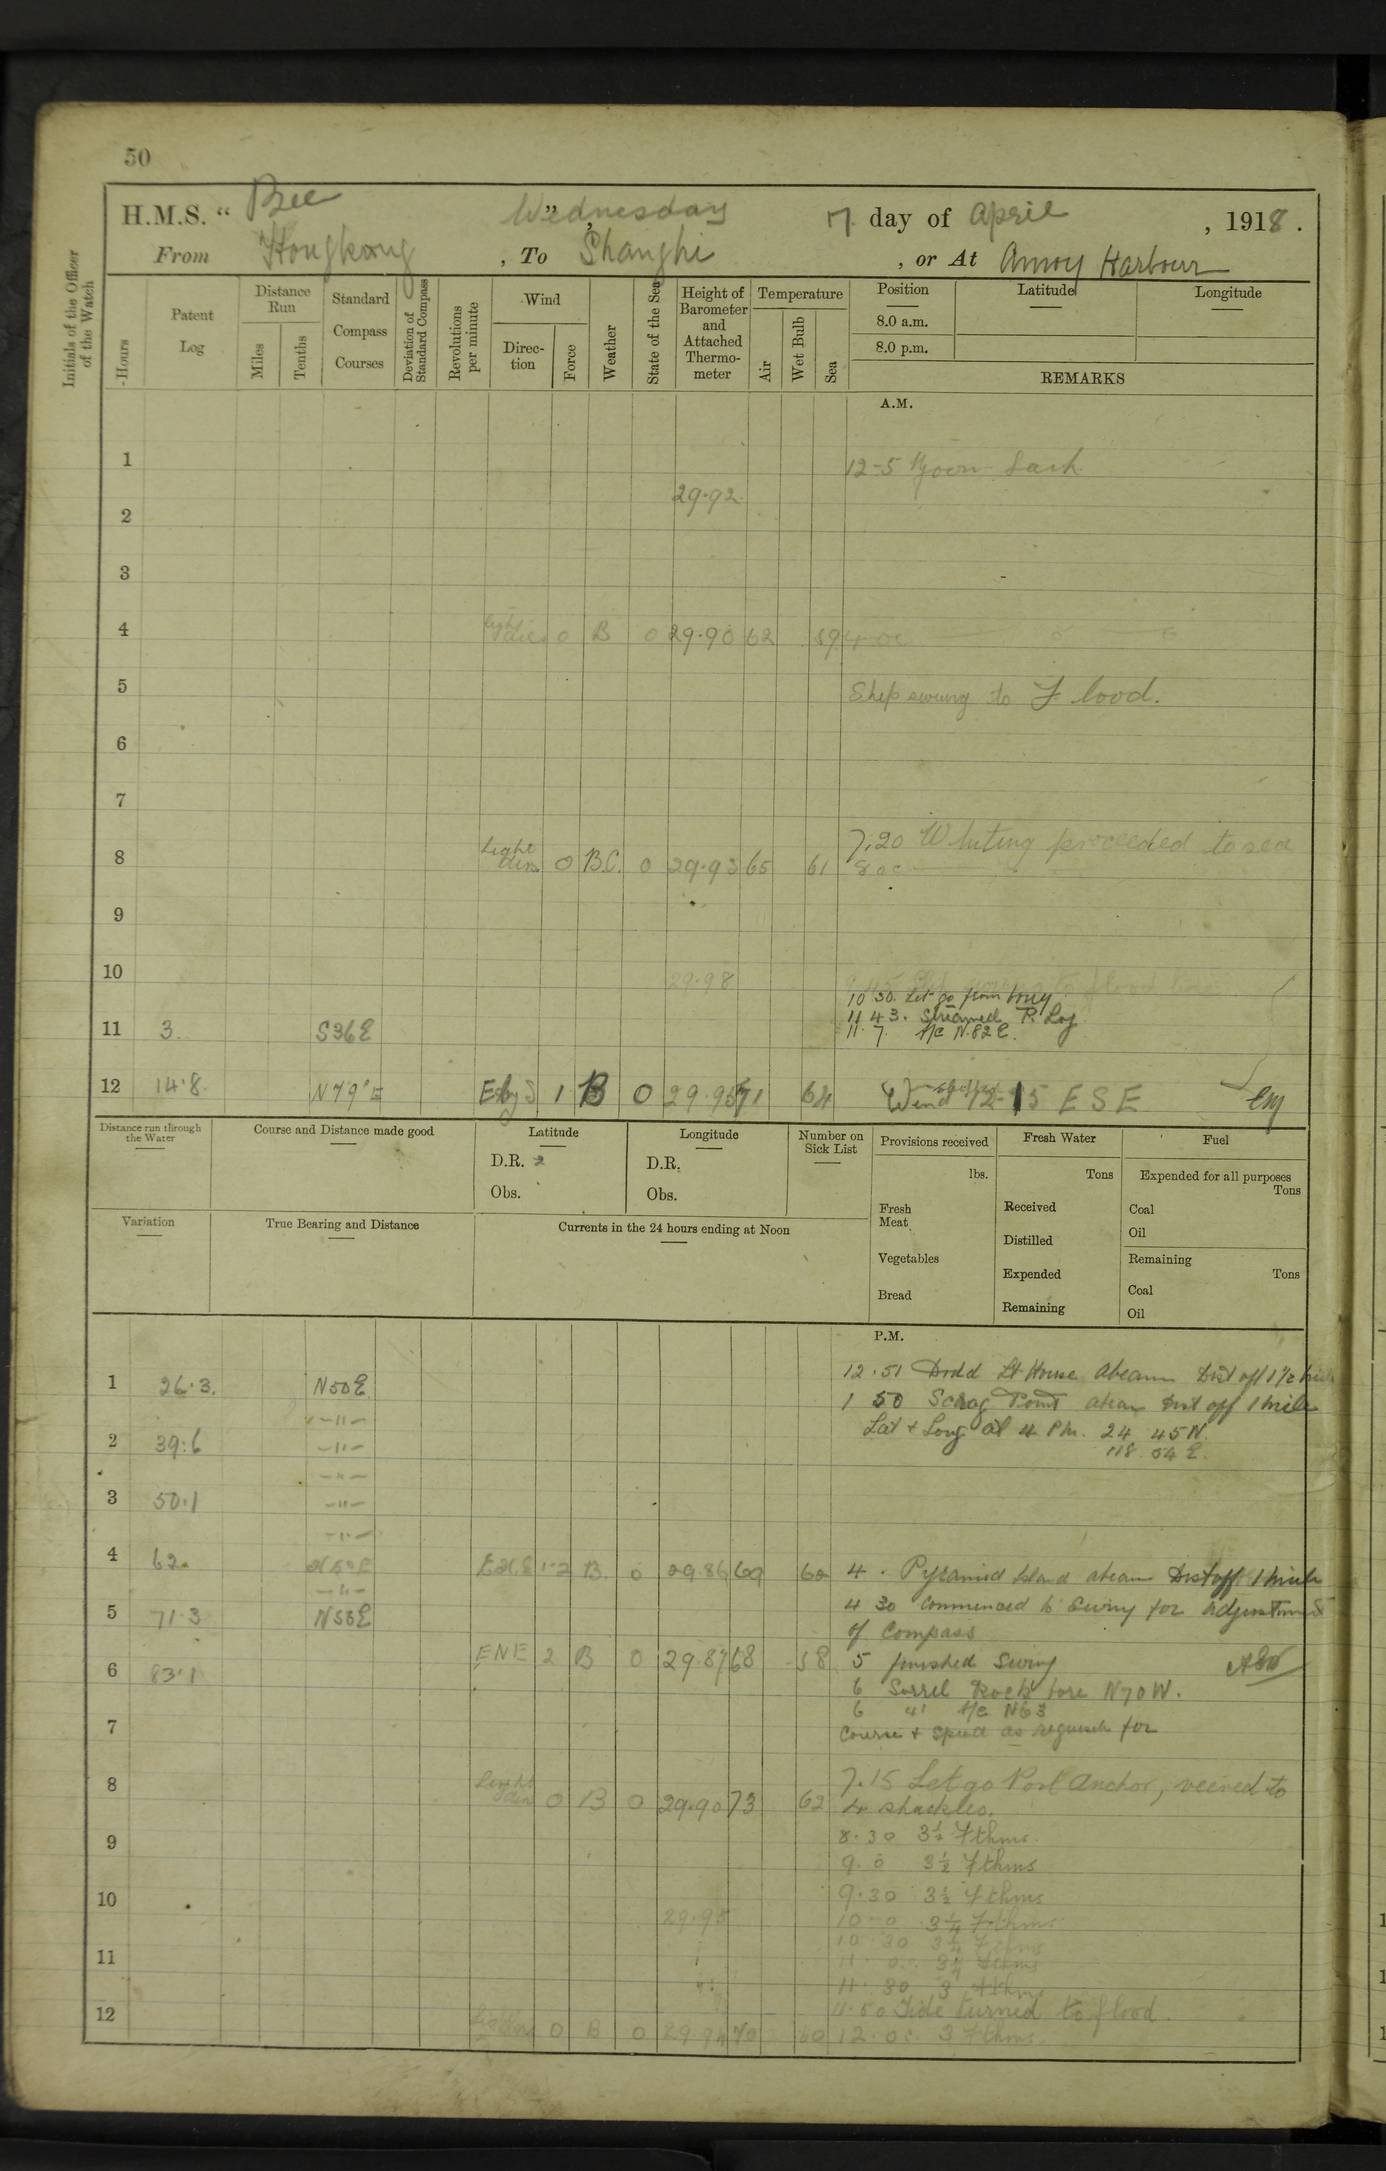 50
H.M.S. “ Bee ”, Wednesday 17 day of April , 1918 .
From Hongkong , To Shanghi , or At Amoy Harbour
Initials of the Officer of the Watch
Hours
Patent Log
Distance Run
Miles
Tenths
Standard Compass Courses
Deviation of Standard Compass
Revolutions per minute
Wind
Direction
Force
Weather
State of the Sea
Height of Barometer and Attached Thermometer
Temperature
Air
Wet Bulb
Sea
Position
8.0 a.m.
8.0 p.m.
Latitude
Longitude
REMARKS
A.M.
1 12-5 Moon
29.92
2
3
4 light airs 0 B 0 29.90 62 59
5 Ship swung to Flood.
6
7
7.20 Whiting proceeded to sea
8 Light airs 0 B.C. 0 29.93 65 61 8 oc
9
10 29.98
10 30. Let go from buoy
11 43. Streamed P. Log
11 3. S36E 11.7 A/c N.82 E.
12 14.8. N79°E EbyS 1 B 0 29.95 71 64 Wind shifted 12-15 E S E EM
Distance run through the Water
Course and Distance made good
Latitude
D.R. 2
Obs.
Longitude
D.R.
Obs.
Number on Sick List
Provisions received
lbs.
Fresh Meat
Vegetables
Bread
Fresh Water
Tons
Received
Distilled
Expended
Remaining
Fuel
Expended for all purposes
Tons
Coal
Oil
Remaining
Tons
Coal
Oil
Variation
True Bearing and Distance
Currents in the 24 hours ending at Noon
P.M.
12.51 Dodd Lt House abeam Dist off 1 1/2 mile
1 26.3. N50E 1 50 Scrag Point abeam Dist off 1 mile
-"- Lat & Long at 4 P.M. 24 45 N.
2 39.6 -"- 118 54 E.
-"-
3 50.1 -"-
-"-
4 62. N50E ExS 1-2 B. 0 29.86 69 60 4 . Pyramid Island abeam Dist off 1 mile
-"-
5 71.3 N53E 4 30 Commenced to Swing for adjustment
of Compass
ENE 2 B 0 29.87 68 58 5 finished Swing
6 83.1 6 Sorrel Rock bore N70W.
6 41 A/c N63
7 Course & Speed as requisite for
7.15 Let go Port Anchor, veered to
8 Light airs 0 B 0 29.90 73 62 4 shackles.
8.30 3½ Fthms.
9 9. 0 3½ Fthms
9.30 3½ Fthms
10 29.95 10 0 3¼ Fthms
10 30 3¼ Fthms
11 11. 0. 3¼ Fthms
11. 30 3 Fthms
11.50 Tide turned to flood.
12 0 B 0 29.94 70 60 12. oc 3 Fthms.